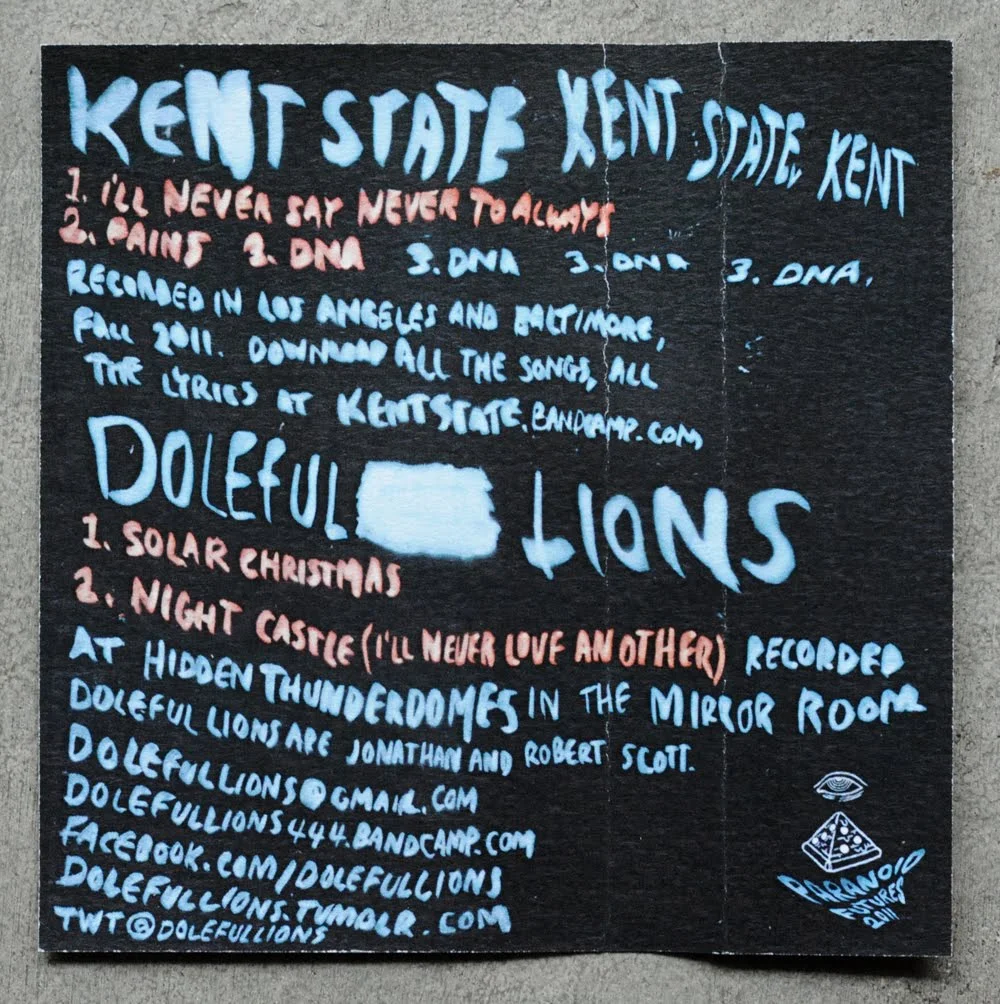 KENT STATE KENT STATE KENT
1. I'LL NEVER SAY NEVER TO ALWAYS
2. PAINS 3. DNA 3. DNA 3. DNA 3. DNA.
RECORDED IN LOS ANGELES AND BALTIMORE,
FALL 2011. DOWNLOAD ALL THE SONGS, ALL
THE LYRICS AT KENTSTATE.BANDCAMP.COM
DOLEFUL LIONS
1. SOLAR CHRISTMAS
2. NIGHT CASTLE (I'LL NEVER LOVE ANOTHER) RECORDED
AT HIDDEN THUNDERDOMES IN THE MIRROR ROOM
DOLEFUL LIONS ARE JONATHAN AND ROBERT SCOTT.
DOLEFULLIONS@GMAIL.COM
DOLEFULLIONS444.BANDCAMP.COM
FACEBOOK.COM/DOLEFULLIONS
DOLEFULLIONS.TUMBLR.COM
TWT@DOLEFULLIONS
PARANOID
FUTURES
2011